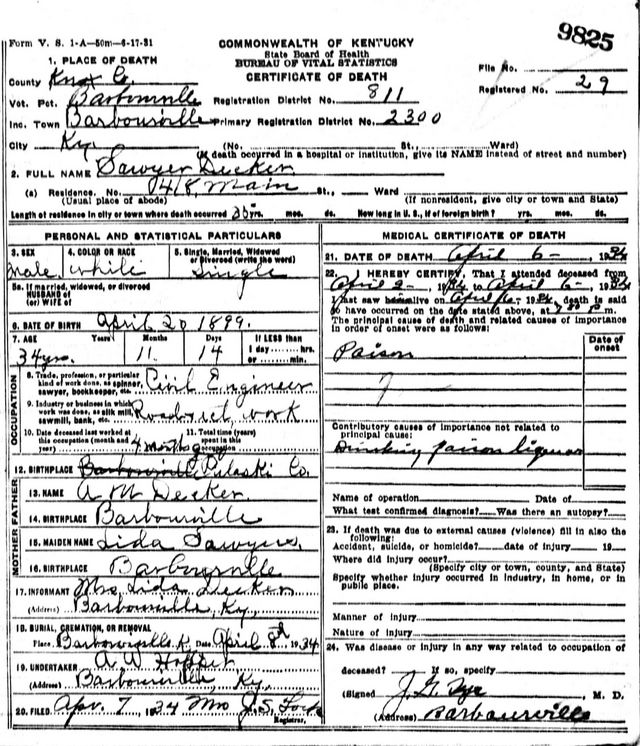 9825
Form V. S. 1-A—50m—6-17-31
COMMONWEALTH OF KENTUCKY
State Board of Health
BUREAU OF VITAL STATISTICS
CERTIFICATE OF DEATH
File No.
Registered No. 29
1. PLACE OF DEATH
County Knox Co
Vot. Pct. Barbourville Registration District No. 811
Inc. Town Barbourville Primary Registration District No. 2300
City Ky. (No. St., Ward)
(If death occurred in a hospital or institution, give its NAME instead of street and number)
2. FULL NAME Sawyer Decker
(a) Residence. No. 418 Main St., Ward
(Usual place of abode) (If nonresident, give city or town and State)
Length of residence in city or town where death occurred 35 yrs. mos. ds. How long in U. S., if of foreign birth? yrs. mos. ds.
PERSONAL AND STATISTICAL PARTICULARS
3. SEX 4. COLOR OR RACE 5. Single, Married, Widowed
or Divorced (write the word)
Male white Single
5a. If married, widowed, or divorced
HUSBAND of
(or) WIFE of
6. DATE OF BIRTH April 20 1899
7. AGE Years Months Days If LESS than
1 day hrs.
or min.
34 yrs. 11 14
OCCUPATION
8. Trade, profession, or particular
kind of work done, as spinner,
sawyer, bookkeeper, etc. Civil Engineer
9. Industry or business in which
work was done, as silk mill,
sawmill, bank, etc. work
10. Date deceased last worked at
this occupation (month and
year) 4 months ago
11. Total time (years)
spent in this
occupation
12. BIRTHPLACE Barbourville Pulaski Co.
FATHER
13. NAME A M Decker
14. BIRTHPLACE Barbourville
MOTHER
15. MAIDEN NAME Lida Sawyers
16. BIRTHPLACE Barbourville
17. INFORMANT Mrs. Lida Decker
(Address) Barbourville Ky.
18. BURIAL, CREMATION, OR REMOVAL
Place Barbourville K. Date April 8th 1934
19. UNDERTAKER A. W.
(Address) Barbourville, Ky.
20. FILED Apr. 7 1934 Mrs J. S.
Registrar.
MEDICAL CERTIFICATE OF DEATH
21. DATE OF DEATH April 6- , 1934
22. I HEREBY CERTIFY, That I attended deceased from
April 2- , 1934 to April 6- , 1934
I last saw him alive on April 6 , 1934, death is said
to have occurred on the date stated above, at 7 30 P.m.
The principal cause of death and related causes of importance
in order of onset were as follows:
Date of
onset
Poison
?
Contributory causes of importance not related to
principal cause:
Drinking poison liquor
Name of operation Date of
What test confirmed diagnosis? Was there an autopsy?
23. If death was due to external causes (violence) fill in also the
following:
Accident, suicide, or homicide? date of injury 19
Where did injury occur?
(Specify city or town, county, and State)
Specify whether injury occurred in industry, in home, or in
public place.
Manner of injury
Nature of injury
24. Was disease or injury in any way related to occupation of
deceased? If so, specify
(Signed J. G. Tye , M. D.
(Address) Barbourville